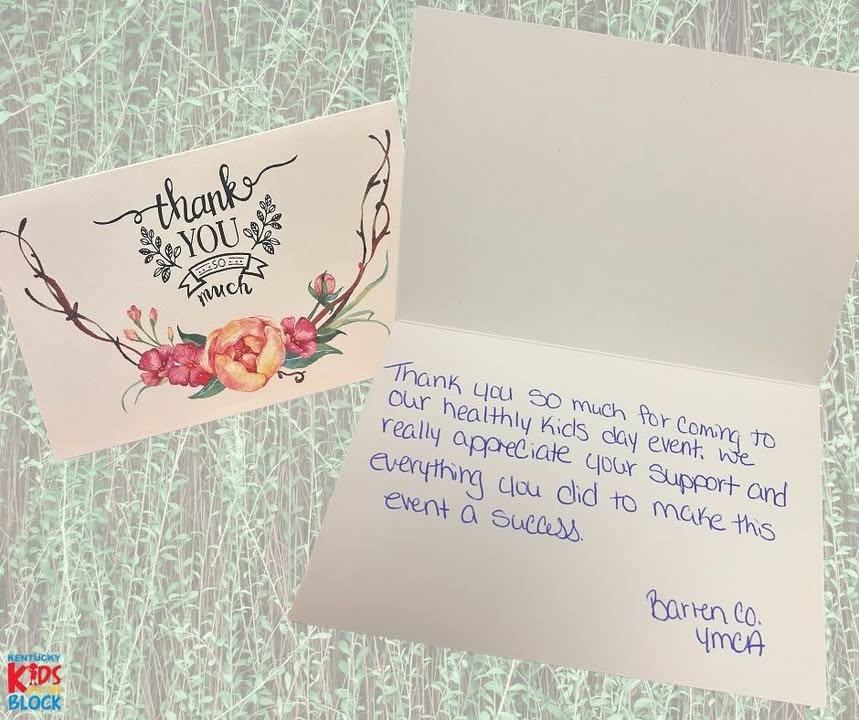 thank
YOU
SO
much
Thank you so much for coming to
our healthly kids day event. we
really appreciate your support and
everything you did to make this
event a success.
Barren Co.
YMCA
KENTUCKY
KIDS
BLOCK